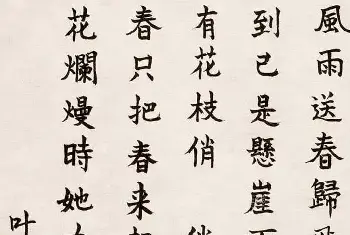 風雨送春歸
到已是懸崖
有花枝俏
春只把春来
花爛熳時她
叶